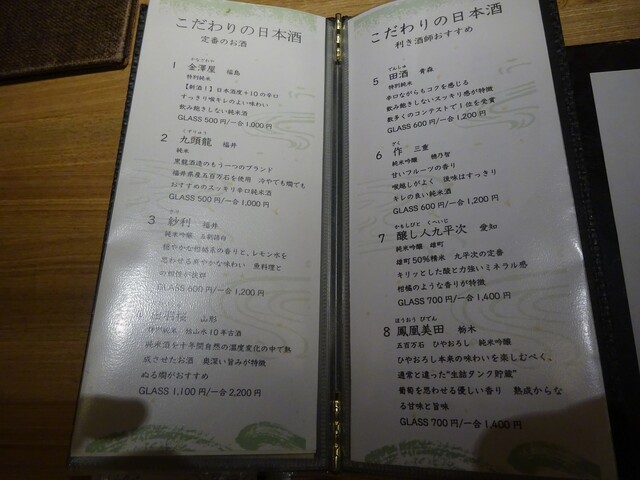 こだわりの日本酒
定番のお酒
1 金澤屋 福島
特別純米
【新酒!】日本酒度+10の辛口
すっきり喉キレのよい味わい
飲み飽きしない純米酒
GLASS 500円/一合 1,000円
くずりゅう
2 九頭龍 福井
純米
黒龍酒造のもう一つのブランド
福井県産五百万石を使用 冷やでも燗でも
おすすめのスッキリ辛口純米酒
GLASS 500円/一合 1,000円
さり
3 紗利 福井
純米吟醸 五割諸白
穏やかな柑橘系の香りと、レモン水を
思わせる爽やかな味わい 魚料理と
の相性が抜群
GLASS 600円/一合 1,200円
4 出羽桜 山形
特別純米 枯山水10年古酒
純米酒を十年間自然の温度変化の中で熟
成させたお酒 奥深い旨みが特徴
ぬる燗がおすすめ
GLASS 1,100円/一合 2,200円
こだわりの日本酒
利き酒師おすすめ
でんしゅ
5 田酒 青森
特別純米
辛口ながらもコクを感じる
飲み飽きしないスッキリ感が特徴
数多くのコンテストで1位を受賞
GLASS 600円/一合 1,200円
ざく
6 作 三重
純米吟醸 穂乃智
甘いフルーツの香り
喉越しがよく 後味はすっきり
キレの良い純米酒
GLASS 600円/一合 1,200円
かもしびと くへいじ
7 醸し人九平次 愛知
純米吟醸 雄町
雄町50%精米 九平次の定番
キリッとした酸と力強いミネラル感
柑橘のような香りが特徴
GLASS 700円/一合 1,400円
ほうおう びでん
8 鳳凰美田 栃木
五百万石 ひやおろし 純米吟醸
ひやおろし本来の味わいを楽しむべく、
通常と違った"生詰タンク貯蔵"
葡萄を思わせる優しい香り 熟成からな
る甘味と旨味
GLASS 700円/一合 1,400円